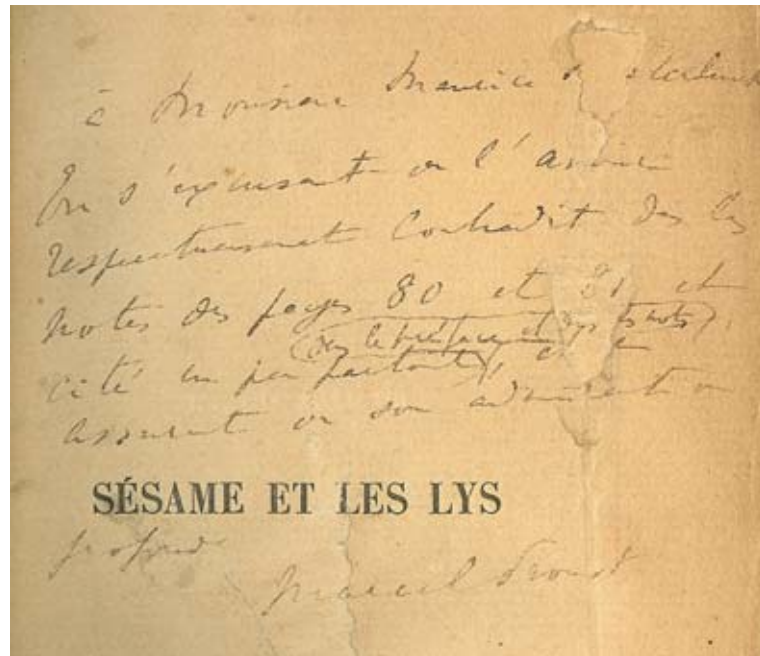 à Monsieur Maurice
En s'excusant de l'avoir
respectueusement contredit dans les
notes des pages 80 et 81 et
(dans la préface et dans les notes)
cité un peu partout, et
assurant de son admiration
SÉSAME ET LES LYS
profonde
Marcel Proust